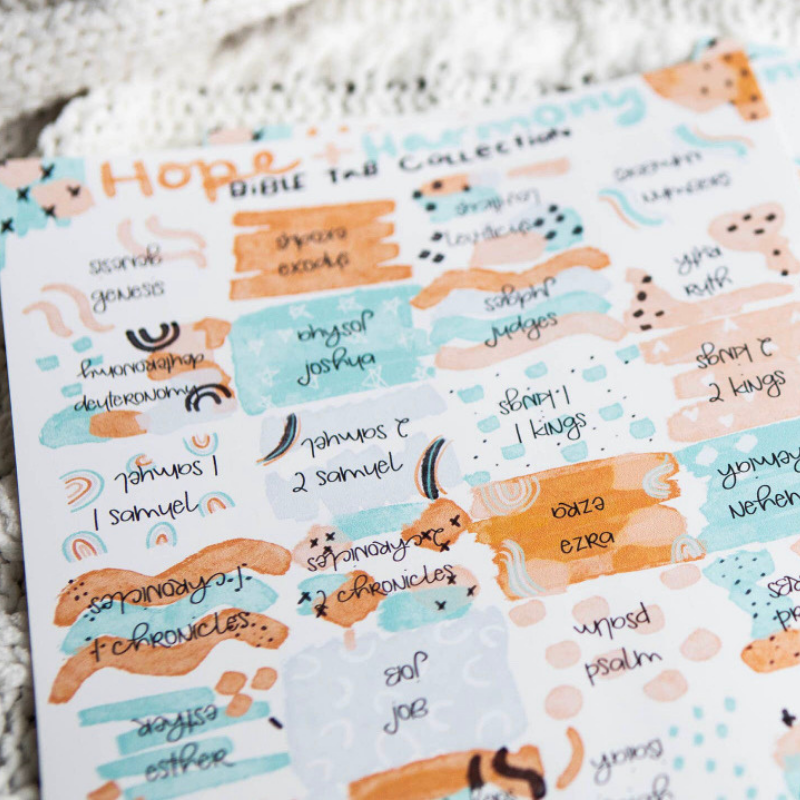 Hope + Harmony
BIBLE TAB COLLECTION
genesis
genesis
exodus
exodus
leviticus
leviticus
numbers
numbers
deuteronomy
deuteronomy
joshua
joshua
judges
judges
ruth
ruth
1 samuel
1 samuel
2 samuel
2 samuel
1 kings
1 kings
2 kings
2 kings
1 chronicles
1 chronicles
2 chronicles
2 chronicles
ezra
ezra
Nehem
esther
esther
job
job
psalm
psalm